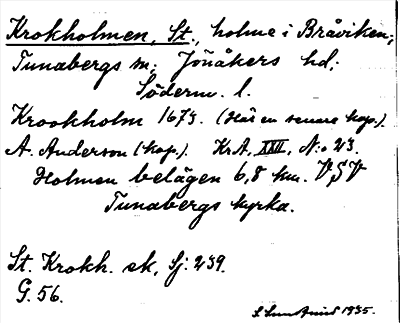 Krokholmen, St., holme i Bråviken;
Tunabergs sn; Jönåkers hd;
Söderm. l.
Krookholm 1673. (Här en senare kop.).
A. Anderson (kop.). Kr.A. XXII, N:o 23.
Holmen belägen 6,8 km. VSV
Tunabergs kyrka.
St. Krokh. ek, Sj. 239.
G. 56.
1935.